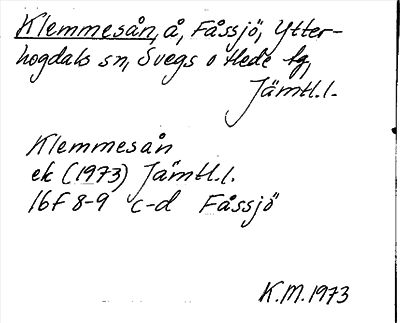 Klemmesån, å, Fåssjö, Ytter-
hogdals sn, Svegs o Hede tg,
Jämtl.l.
Klemmesån
ek (1973) Jämtl.l.
16F 8-9 c-d Fåssjö
K.M. 1973